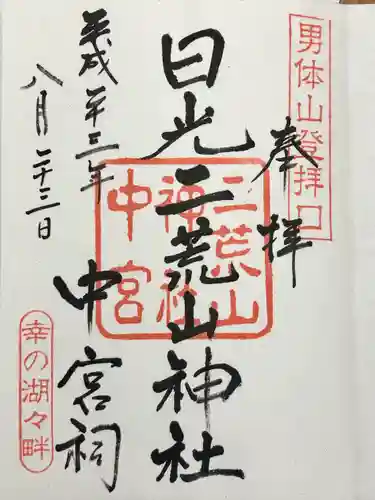 男体山登拝口
奉拝
日光二荒山神社
中宮祠
二荒山
神社
中宮
平成二十三年
八月二十三日
幸の湖々畔